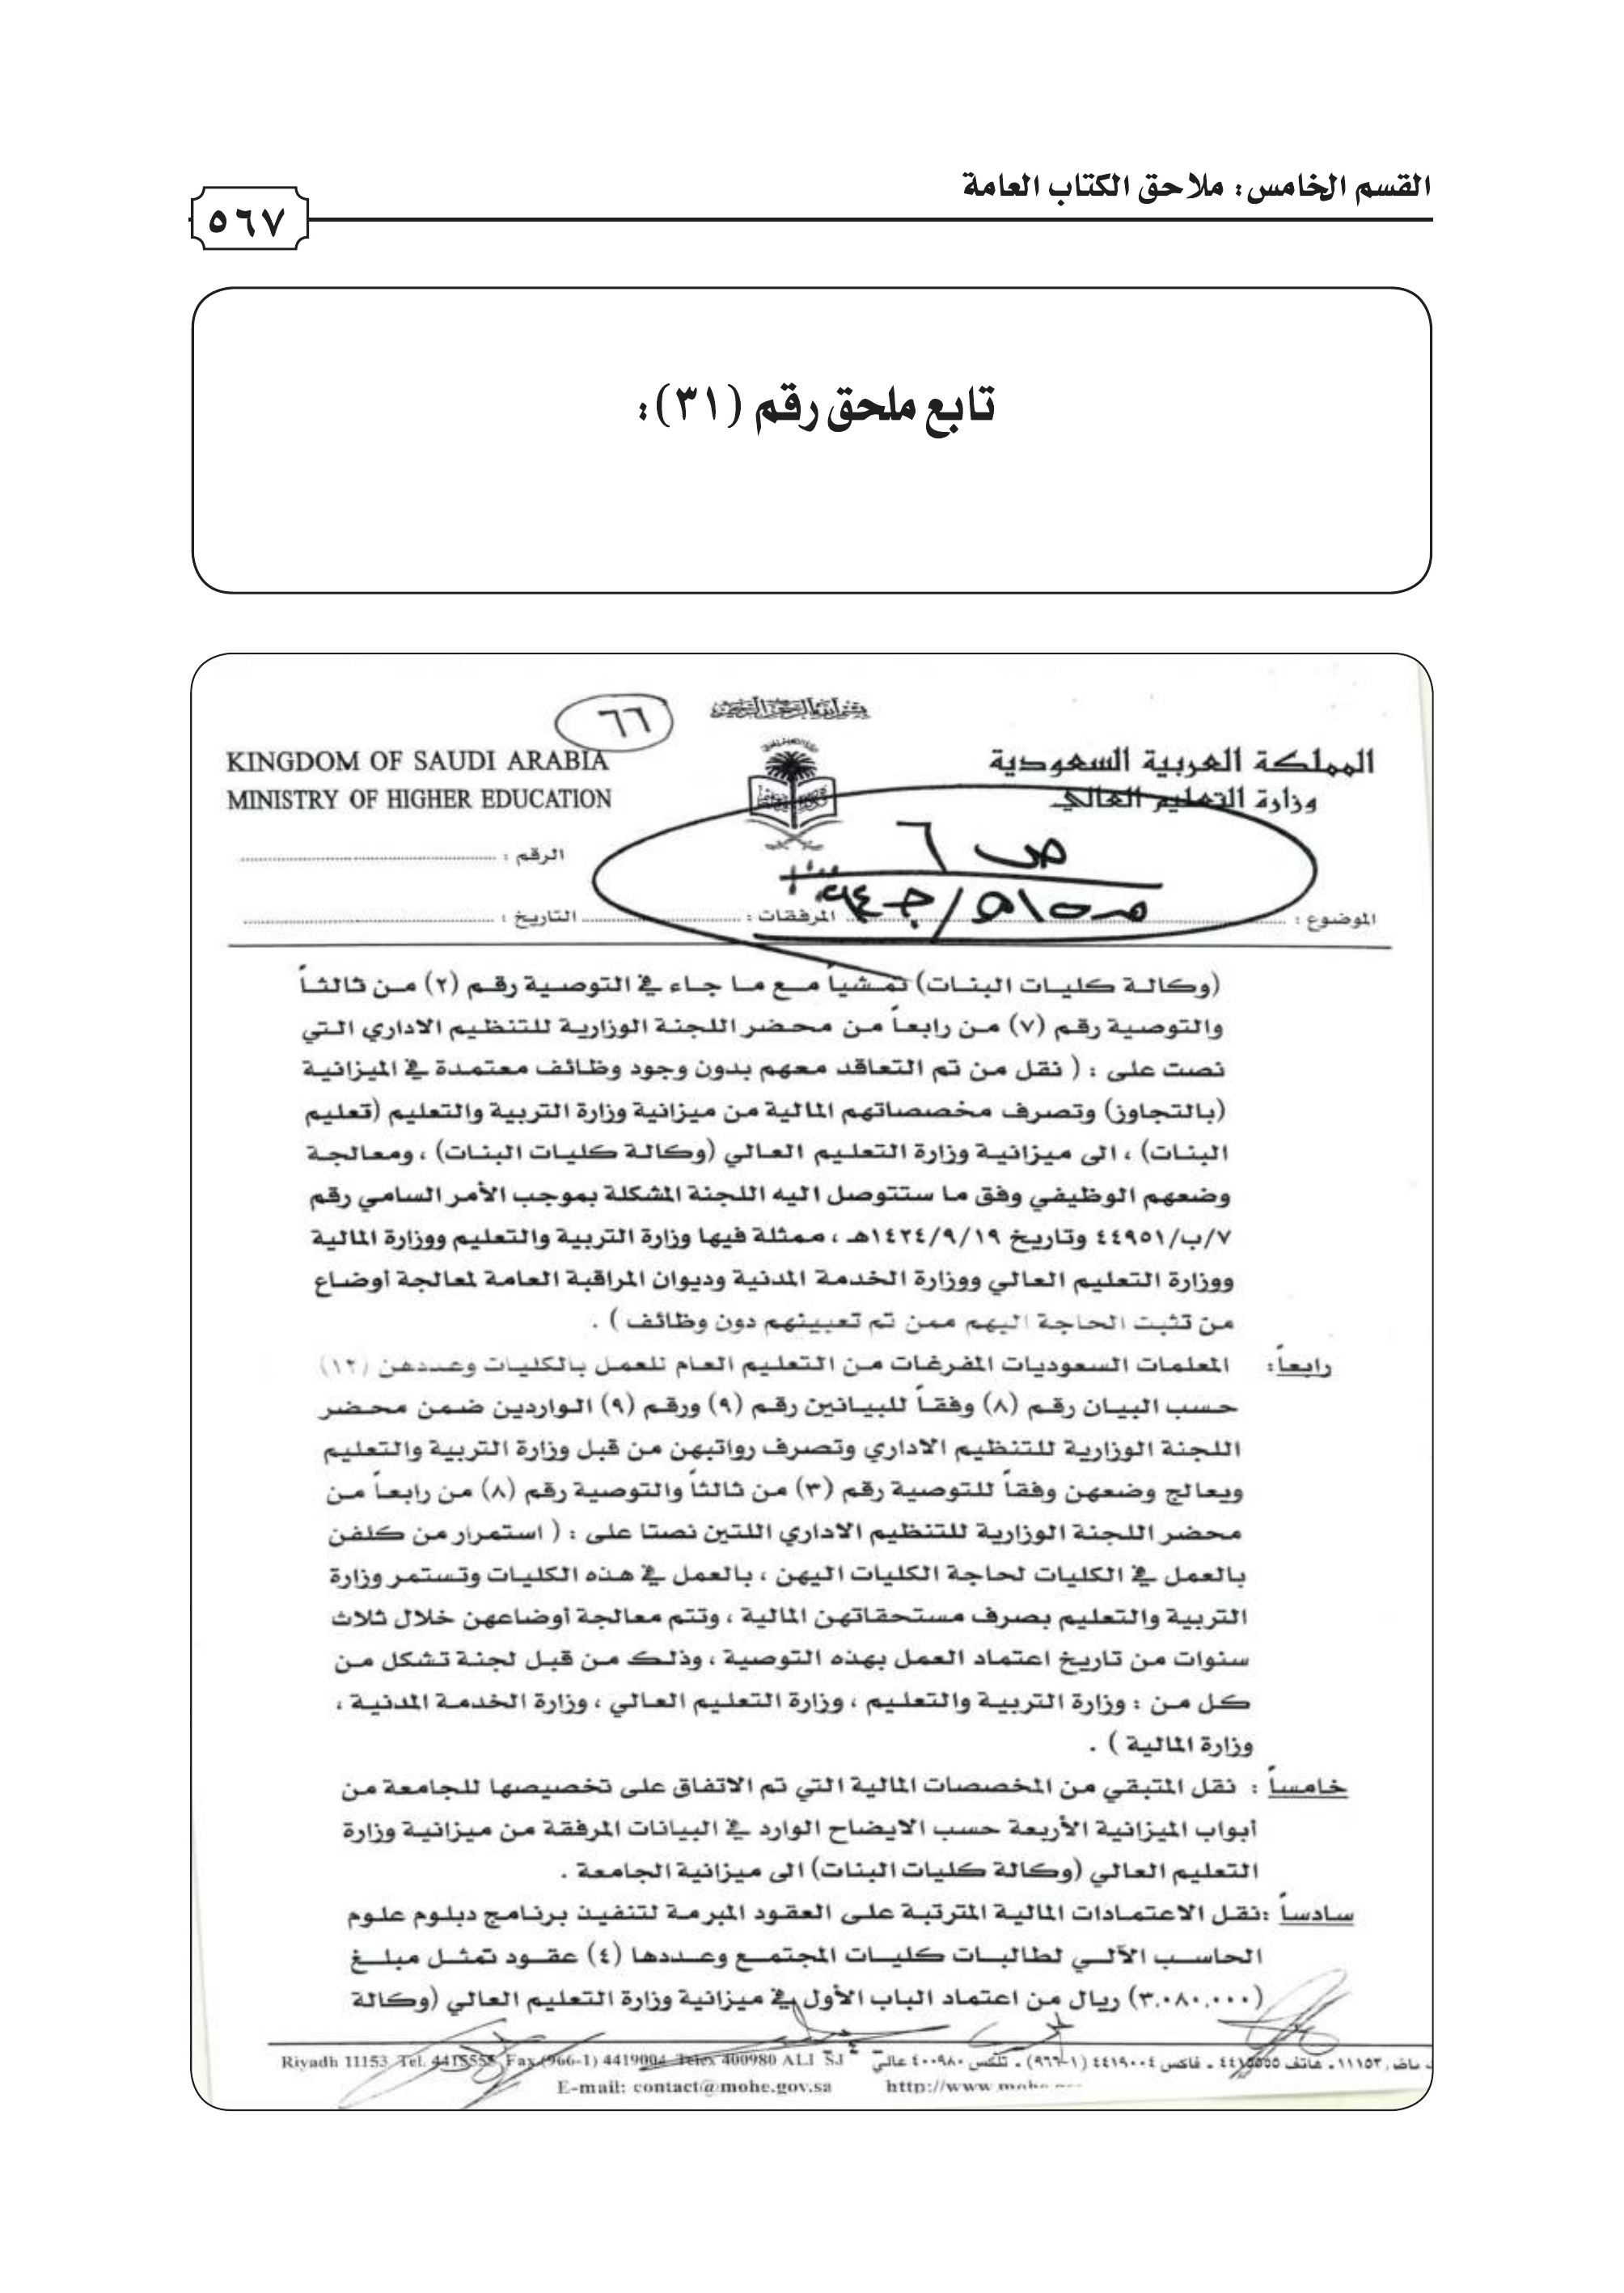 القسم الخامس: ملاحق الكتاب العامة
٥٦٧
تابع ملحق رقم (٣١):
٦٦
بسم الله الرحمن الرحيم
المملكة العربية السعودية
وزارة التعليم العالي
KINGDOM OF SAUDI ARABIA
MINISTRY OF HIGHER EDUCATION
ص ٦
الرقم :
الموضوع : المرفقات : التاريخ :
(وكالة كليات البنات) تمشياً مع ما جاء في التوصية رقم (٢) من ثالثاً
والتوصية رقم (٧) من رابعاً من محضر اللجنة الوزارية للتنظيم الاداري التي
نصت على : ( نقل من تم التعاقد معهم بدون وجود وظائف معتمدة في الميزانية
(بالتجاوز) وتصرف مخصصاتهم المالية من ميزانية وزارة التربية والتعليم (تعليم
البنات) ، الى ميزانية وزارة التعليم العالي (وكالة كليات البنات) ، ومعالجة
وضعهم الوظيفي وفق ما ستتوصل اليه اللجنة المشكلة بموجب الأمر السامي رقم
٧/ب/٤٤٩٥١ وتاريخ ١٤٢٤/٩/١٩هـ ، ممثلة فيها وزارة التربية والتعليم ووزارة المالية
ووزارة التعليم العالي ووزارة الخدمة المدنية وديوان المراقبة العامة لمعالجة أوضاع
من تثبت الحاجة اليهم ممن تم تعيينهم دون وظائف ) .
رابعاً: المعلمات السعوديات المفرغات من التعليم العام للعمل بالكليات وعددهن (١٢)
حسب البيان رقم (٨) وفقاً للبيانين رقم (٩) ورقم (٩) الواردين ضمن محضر
اللجنة الوزارية للتنظيم الاداري وتصرف رواتبهن من قبل وزارة التربية والتعليم
ويعالج وضعهن وفقاً للتوصية رقم (٣) من ثالثاً والتوصية رقم (٨) من رابعاً من
محضر اللجنة الوزارية للتنظيم الاداري اللتين نصتا على : ( استمرار من كلفن
بالعمل في الكليات لحاجة الكليات اليهن ، بالعمل في هذه الكليات وتستمر وزارة
التربية والتعليم بصرف مستحقاتهن المالية ، وتتم معالجة أوضاعهن خلال ثلاث
سنوات من تاريخ اعتماد العمل بهذه التوصية ، وذلك من قبل لجنة تشكل من
كل من : وزارة التربية والتعليم ، وزارة التعليم العالي ، وزارة الخدمة المدنية ،
وزارة المالية ) .
خامساً : نقل المتبقي من المخصصات المالية التي تم الاتفاق على تخصيصها للجامعة من
أبواب الميزانية الأربعة حسب الايضاح الوارد في البيانات المرفقة من ميزانية وزارة
التعليم العالي (وكالة كليات البنات) الى ميزانية الجامعة .
سادساً :نقل الاعتمادات المالية المترتبة على العقود المبرمة لتنفيذ برنامج دبلوم علوم
الحاسب الآلي لطالبات كليات المجتمع وعددها (٤) عقود تمثل مبلغ
(٣,٠٨٠,٠٠٠) ريال من اعتماد الباب الأول في ميزانية وزارة التعليم العالي (وكالة
Riyadh 11153 Tel. 4415555 Fax (966-1) 4419004 Telex 400980 ALI SJ ١١١٥٣ ـ هاتف ٤٤١٥٥٥٥ ـ فاكس ٤٤١٩٠٠٤ (١-٩٦٦) ـ تلكس ٤٠٠٩٨٠ عالي
E-mail: contact@mohe.gov.sa http://www